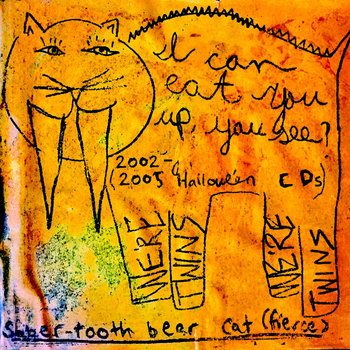 I can
eat you
up, you see?
(2002-
(2005 & Hallowe'en CDs)
WE'RE
TWINS
WE'RE
TWINS
Saber-tooth bear cat (fierce)